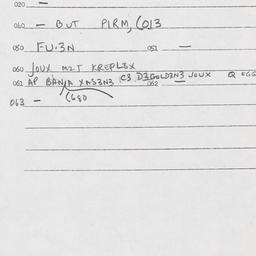 020 —
040 — BUT PIRM, (013
050 FU.3N 051 —
060 JOUX M2T KREPLEX
061 AP BANJA XAS3N3 C3 D3GOLD3N3 JOUX Q EGG
062 —
(680
063 —